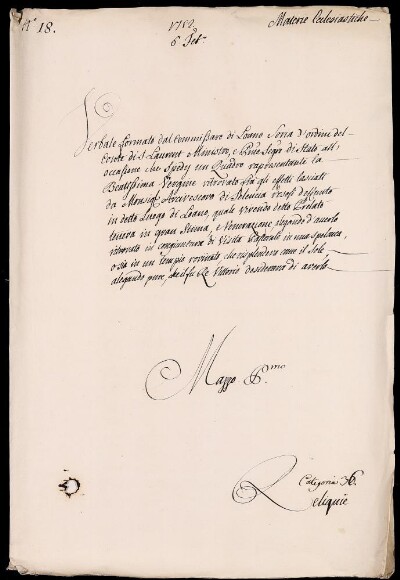 N° 18.
1752
6 Feb.
Materie Ecclesiastiche
Verbale formato dal Commissaro di Loano Soria d'ordine del
Conte di S. Laurent Ministro, e Primo Segro di Stato all'
occasione che spedy un Quadro rapresentante la
Beatissima Vergine ritrovato frà gli effetti lasciati
da Monsigr Arcivescovo di
in detto Luogo di Loano, quale vivendo detto Prelato
teneva in gran Stima, e Venerazione alegando d'averlo
ritrovato in congiuntura di Visita Pastorale in una Spelonca,
o sia in un Tempio rovinato che risplendeva come il Sole
alegando pure, che il fu Re Vittorio desiderava di averlo
Mazzo P.mo
Categoria
Reliquie